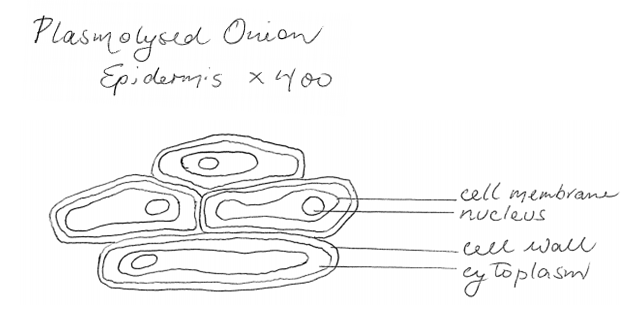 Plasmolysed Onion
Epidermis x400
cell membrane
nucleus
cell wall
cytoplasm